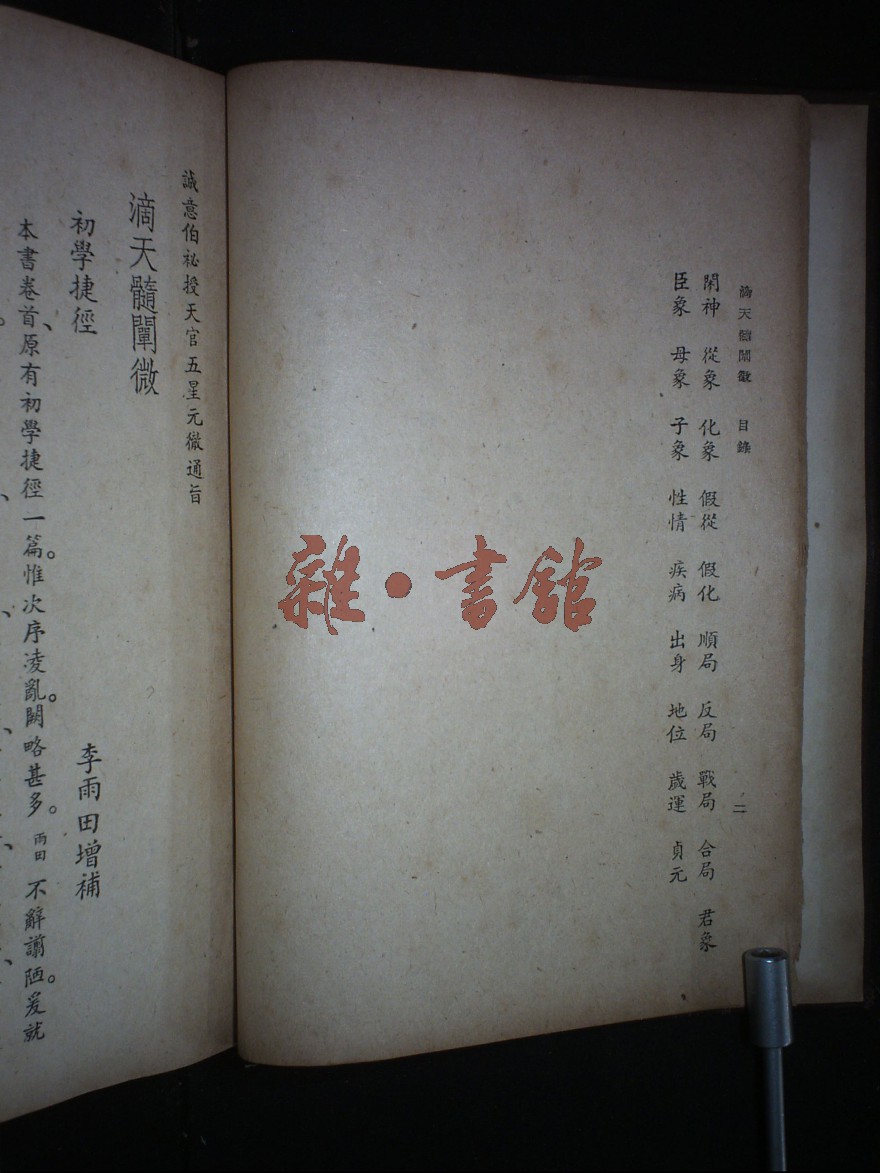 滴天髓闡微　目錄　二
閑神　從象　化象　假從　假化　順局　反局　戰局　合局　君象
臣象　母象　子象　性情　疾病　出身　地位　歲運　貞元
雜・書館
誠意伯祕授天官五星元微通旨
滴天髓闡微
初學捷徑　李雨田增補
本書卷首、原有初學捷徑一篇。惟次序凌亂。闕略甚多。雨田不辭謭陋。爰就